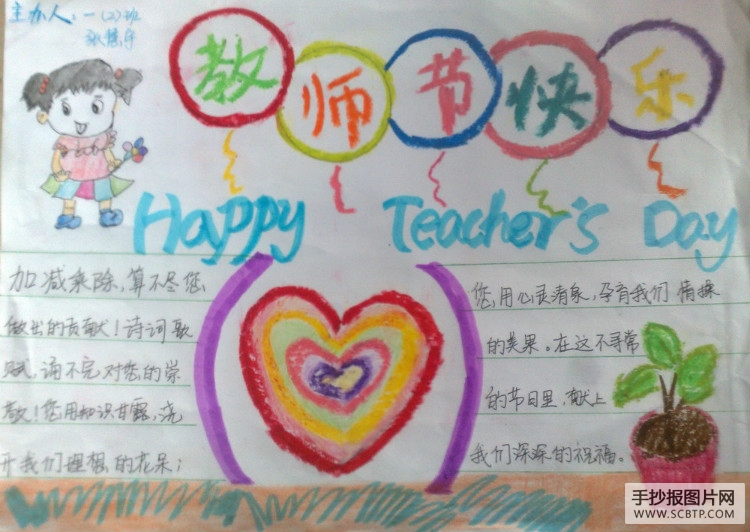 主办人:一(2)班
张慧宇
教师节快乐
Happy Teacher's Day
加减乘除,算不尽您
做出的贡献!诗词歌
赋,诵不完对您的崇
敬!您用知识甘露,浇
开我们理想的花朵;
您用心灵清泉,孕育我们情操
的美果。在这不寻常
的节日里,献上
我们深深的祝福。
手抄报图片网
WWW.SCBTP.COM